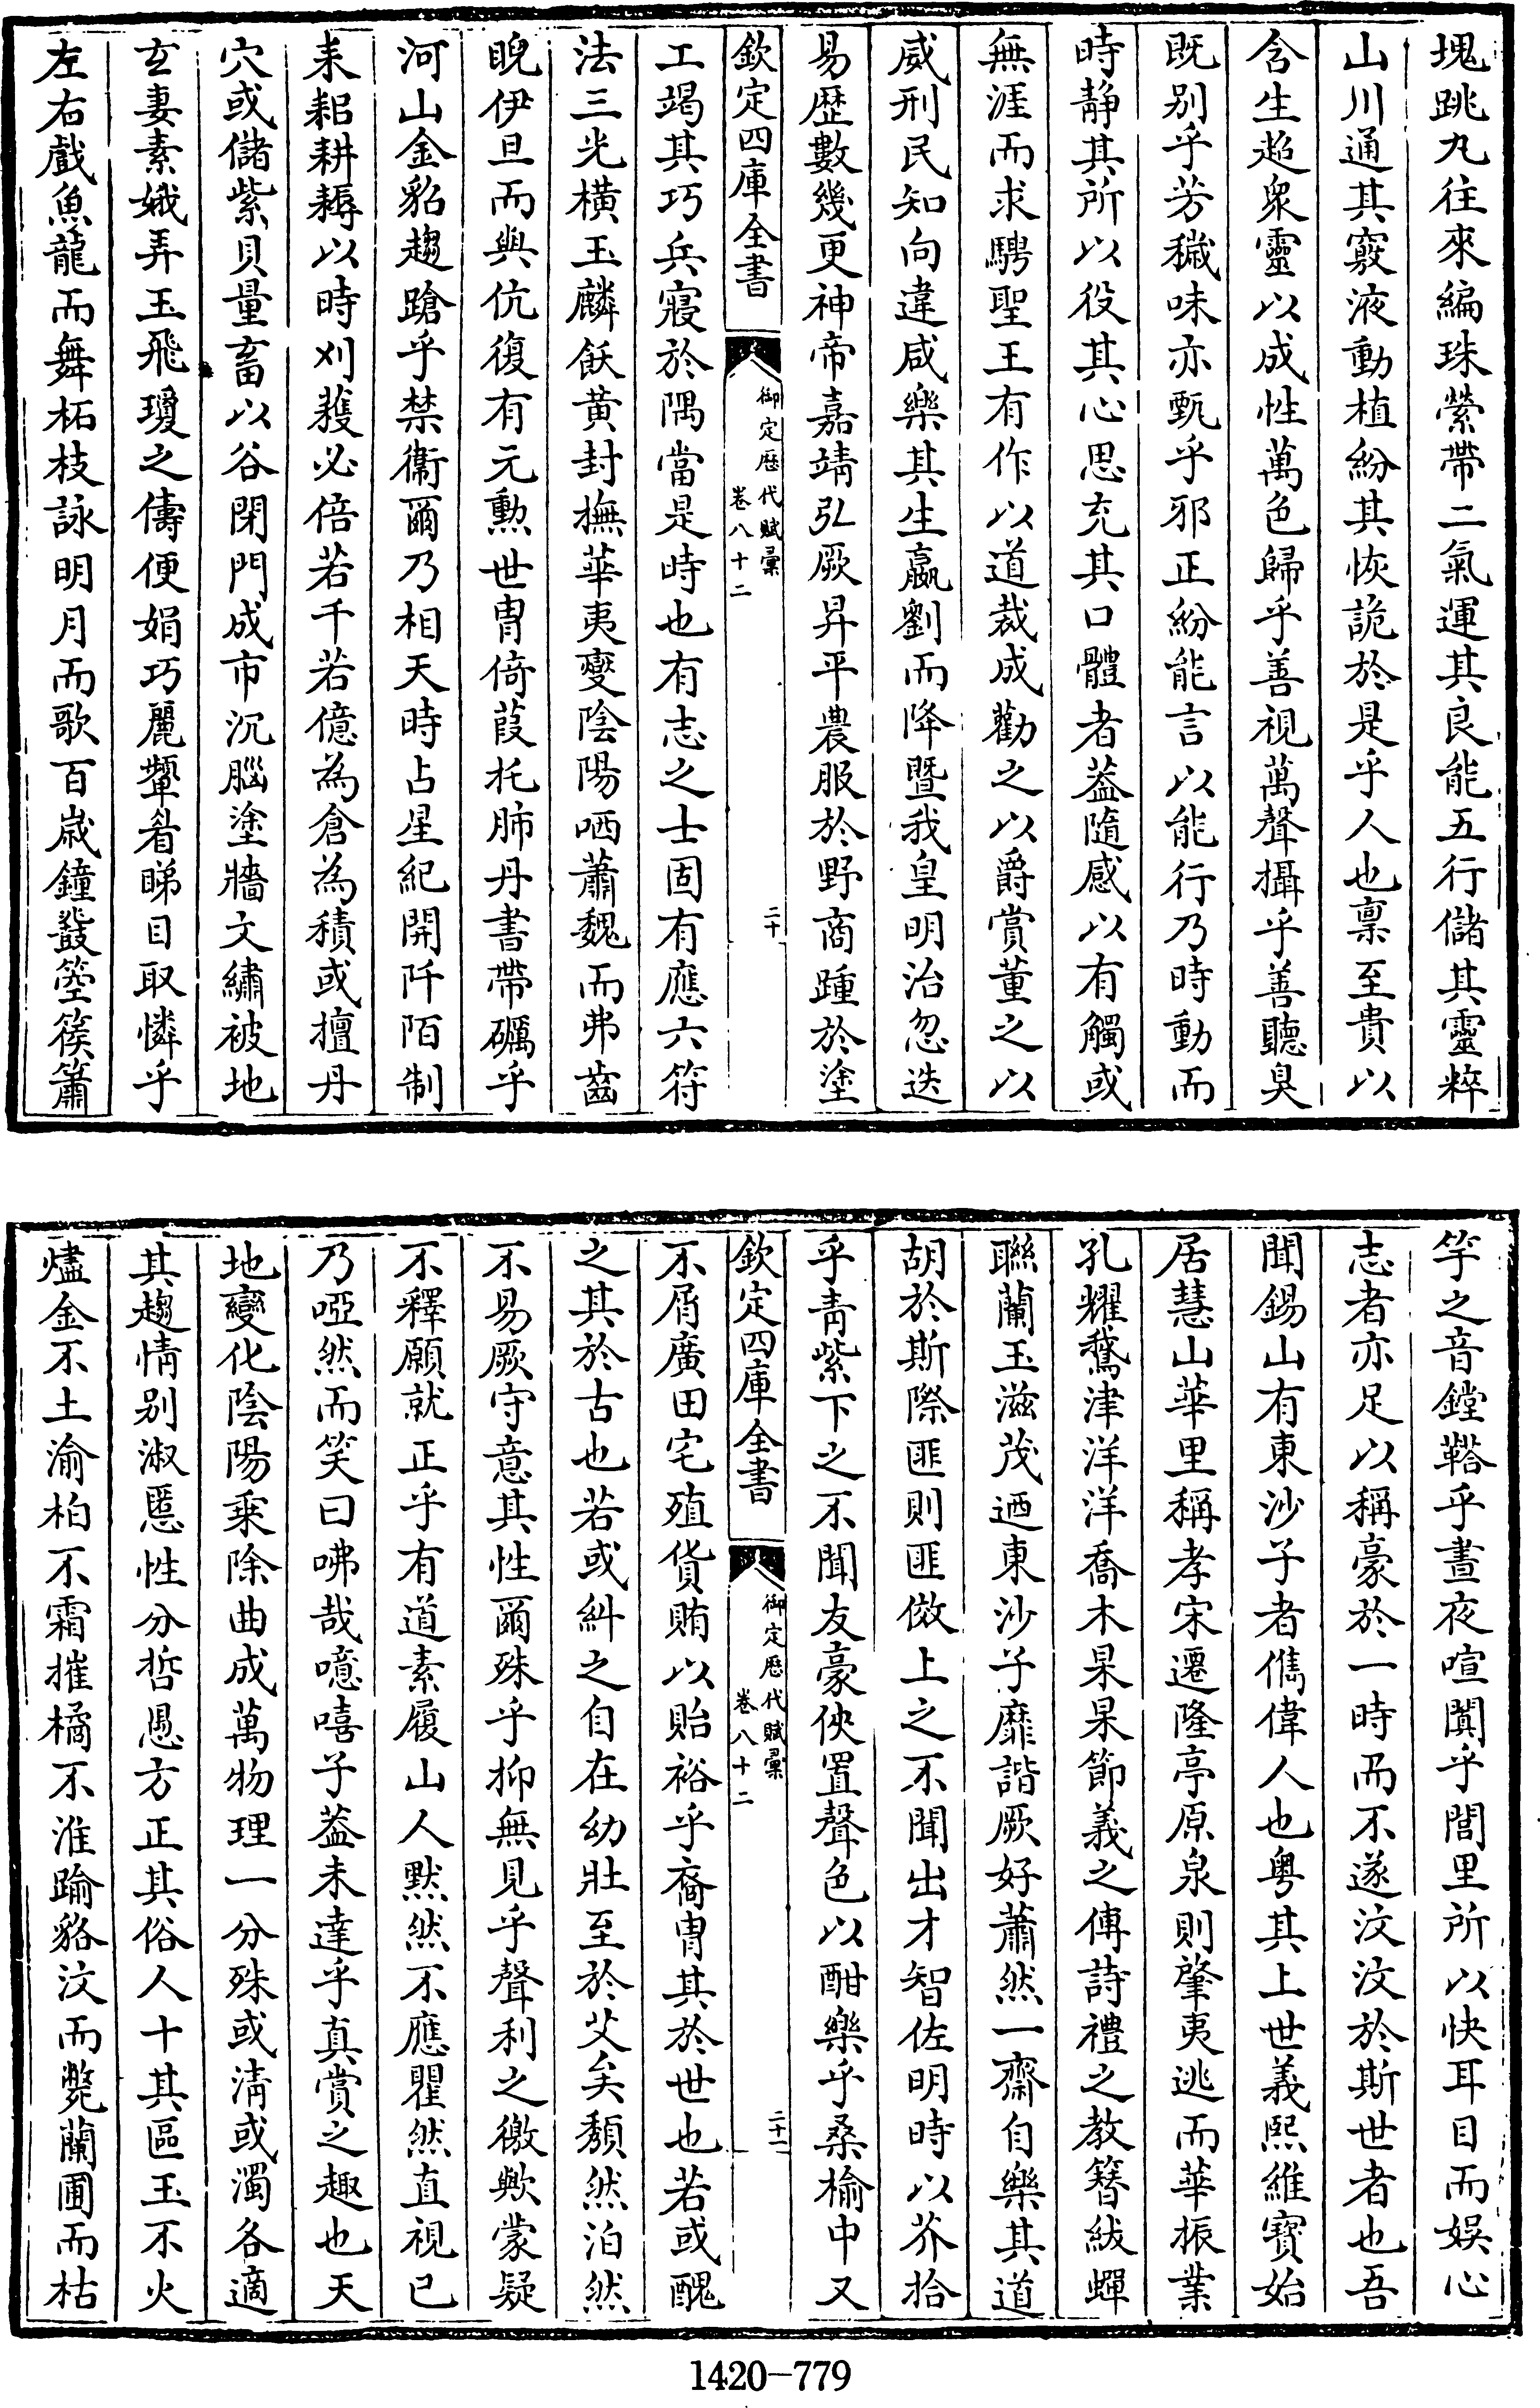 塊跳丸往來編珠縈帶二氣運其良能五行儲其靈粹
山川通其竅液動植紛其恢詭於是乎人也稟至貴以
含生超衆靈以成性萬色歸乎善視萬聲攝乎善聽臭
既别乎芳穢味亦甄乎邪正紛能言以能行乃時動而
時靜其所以役其心思充其口體者葢隨感以有觸或
無涯而求騁聖王有作以道裁成勸之以爵賞董之以
威刑民知向違咸樂其生嬴劉而降暨我皇明治忽迭
易歴數幾更神帝嘉靖弘厥昇平農服於野商踵於塗
欽定四庫全書
御定歴代賦彙
卷八十二
二十
工竭其巧兵寢於隅當是時也有志之士固有應六符
法三光橫玉麟飫黃封撫華夷變陰陽哂蕭魏而弗齒
睨伊旦而與伉復有元勲世胄倚葭托肺丹書帶礪乎
河山金貂趨蹌乎禁衞爾乃相天時占星紀開阡陌制
耒耜耕耨以時刈穫必倍若千若億為倉為積或擅丹
穴或儲紫貝量畜以谷閉門成市沉腦塗牆文繡被地
玄妻素娥弄玉飛瓊之儔便娟巧麗顰眉睇目取憐乎
左右戲魚龍而舞柘枝詠明月而歌百歲鐘鼓箜篌簫
竽之音鏜鞳乎晝夜喧闐乎閭里所以快耳目而娱心
志者亦足以稱豪於一時而不遂汶汶於斯世者也吾
聞錫山有東沙子者儁偉人也粤其上世義熙維寶始
居慧山華里稱孝宋遷隆亭原泉則肇夷逃而華振業
孔耀鵞津洋洋喬木杲杲節義之傳詩禮之教簪紱蟬
聯蘭玉滋茂迺東沙子靡諧厥好蕭然一齋自樂其道
胡於斯際匪則匪傚上之不聞出才智佐明時以芥拾
乎青紫下之不聞友豪俠置聲色以酣樂乎桑榆中又
欽定四庫全書
御定歴代賦彙
卷八十二
二十一
不屑廣田宅殖貨賄以貽裕乎裔胄其於世也若或醜
之其於古也若或糾之自在幼壯至於艾矣頽然泊然
不易厥守意其性爾殊乎抑無見乎聲利之徼歟蒙疑
不釋願就正乎有道素履山人黙然不應瞿然直視已
乃啞然而笑曰咈哉噫嘻子葢未達乎真賞之趣也天
地變化陰陽乗除曲成萬物理一分殊或清或濁各適
其趨情别淑慝性分哲愚方正其俗人十其區玉不火
燼金不土渝柏不霜摧橘不淮踰貉汶而斃蘭圃而枯
1420-779